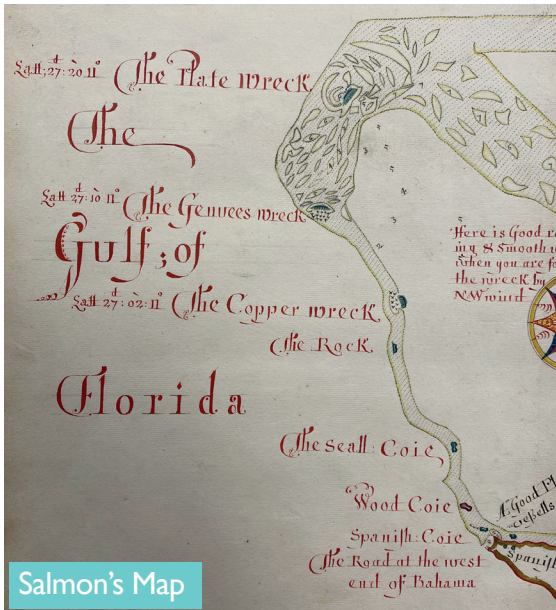 Latt; 27:d 20 no The Plate wreck
The
Latt 27:d 10 no The Genuees wreck
Gulf; of
Latt 27:d 02: no The Copper wreck
The Rock
Florida
The seall: Coie
Wood Coie
Spanish: Coie
The Road at the west
end of Bahama
Here is Good
ing & Smooth
when you are
the wreck by
NW wind
A Good
vessells
Spanish
Salmon's Map